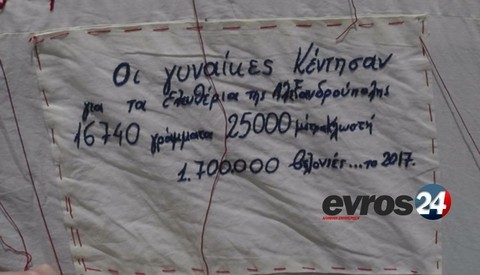 Οι γυναίκες Κέντησαν
για τα Ελευθέρια της Αλεξανδρούπολης
16740 γράμματα 25000 μέτρα κλωστή
1.700.000 βελονιές...το 2017.
evros24